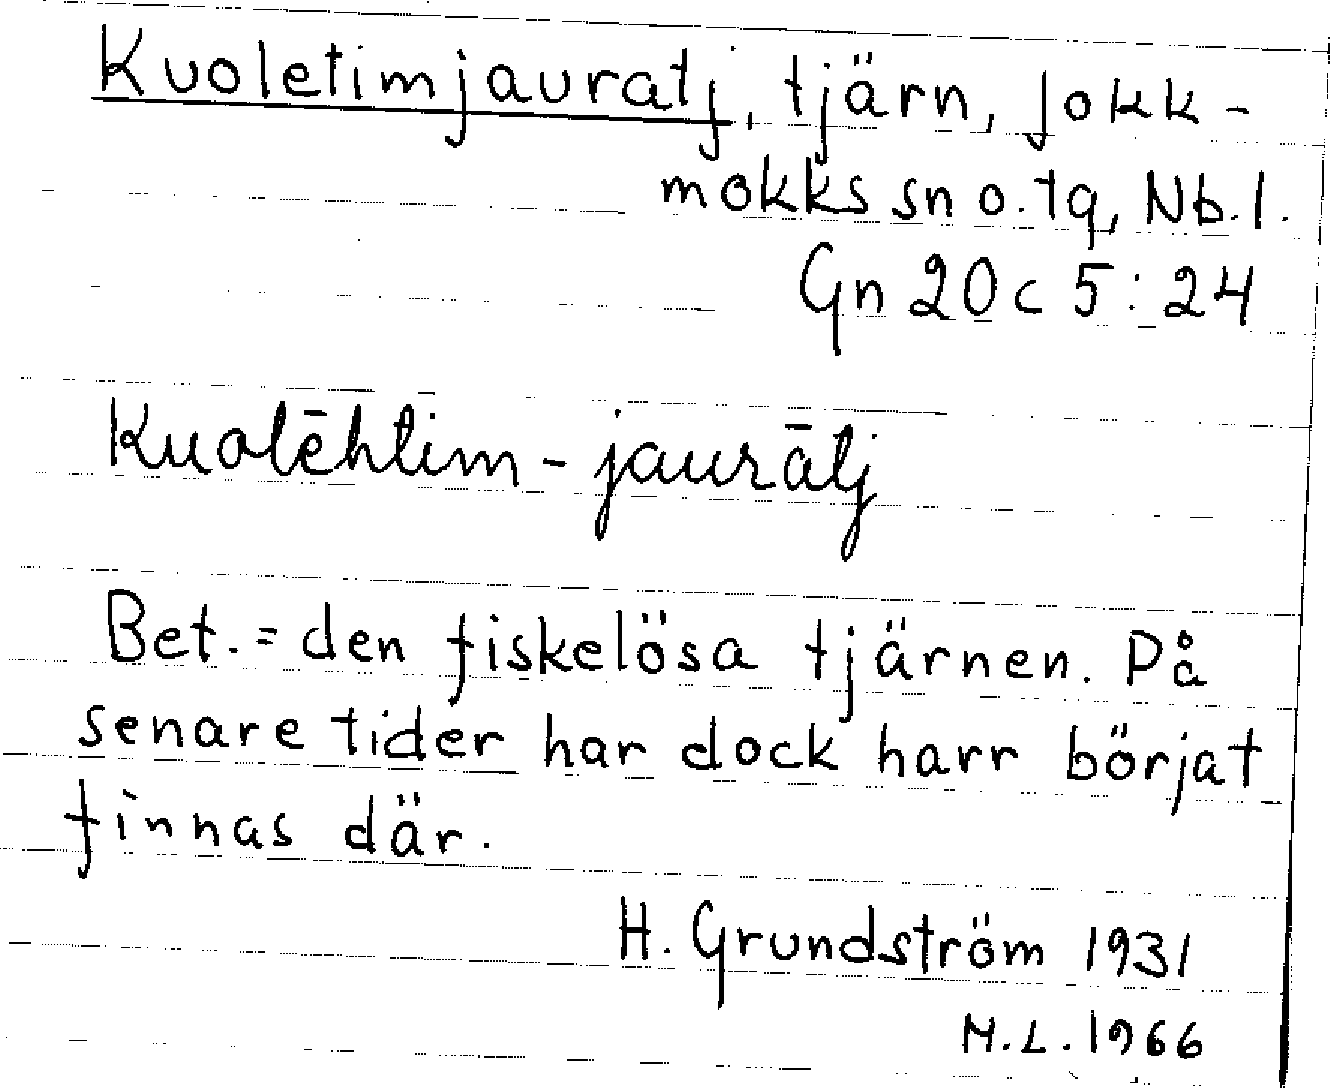 Kuoletimjauratj, tjärn, Jokk-
mokks sn o. tg, Nb. l.
Gn 20c 5:24
Kuolēhtim-jaurātj
Bet. = den fiskelösa tjärnen. På
senare tider har dock harr börjat
finnas där.
H. Grundström 1931
M.L. 1966